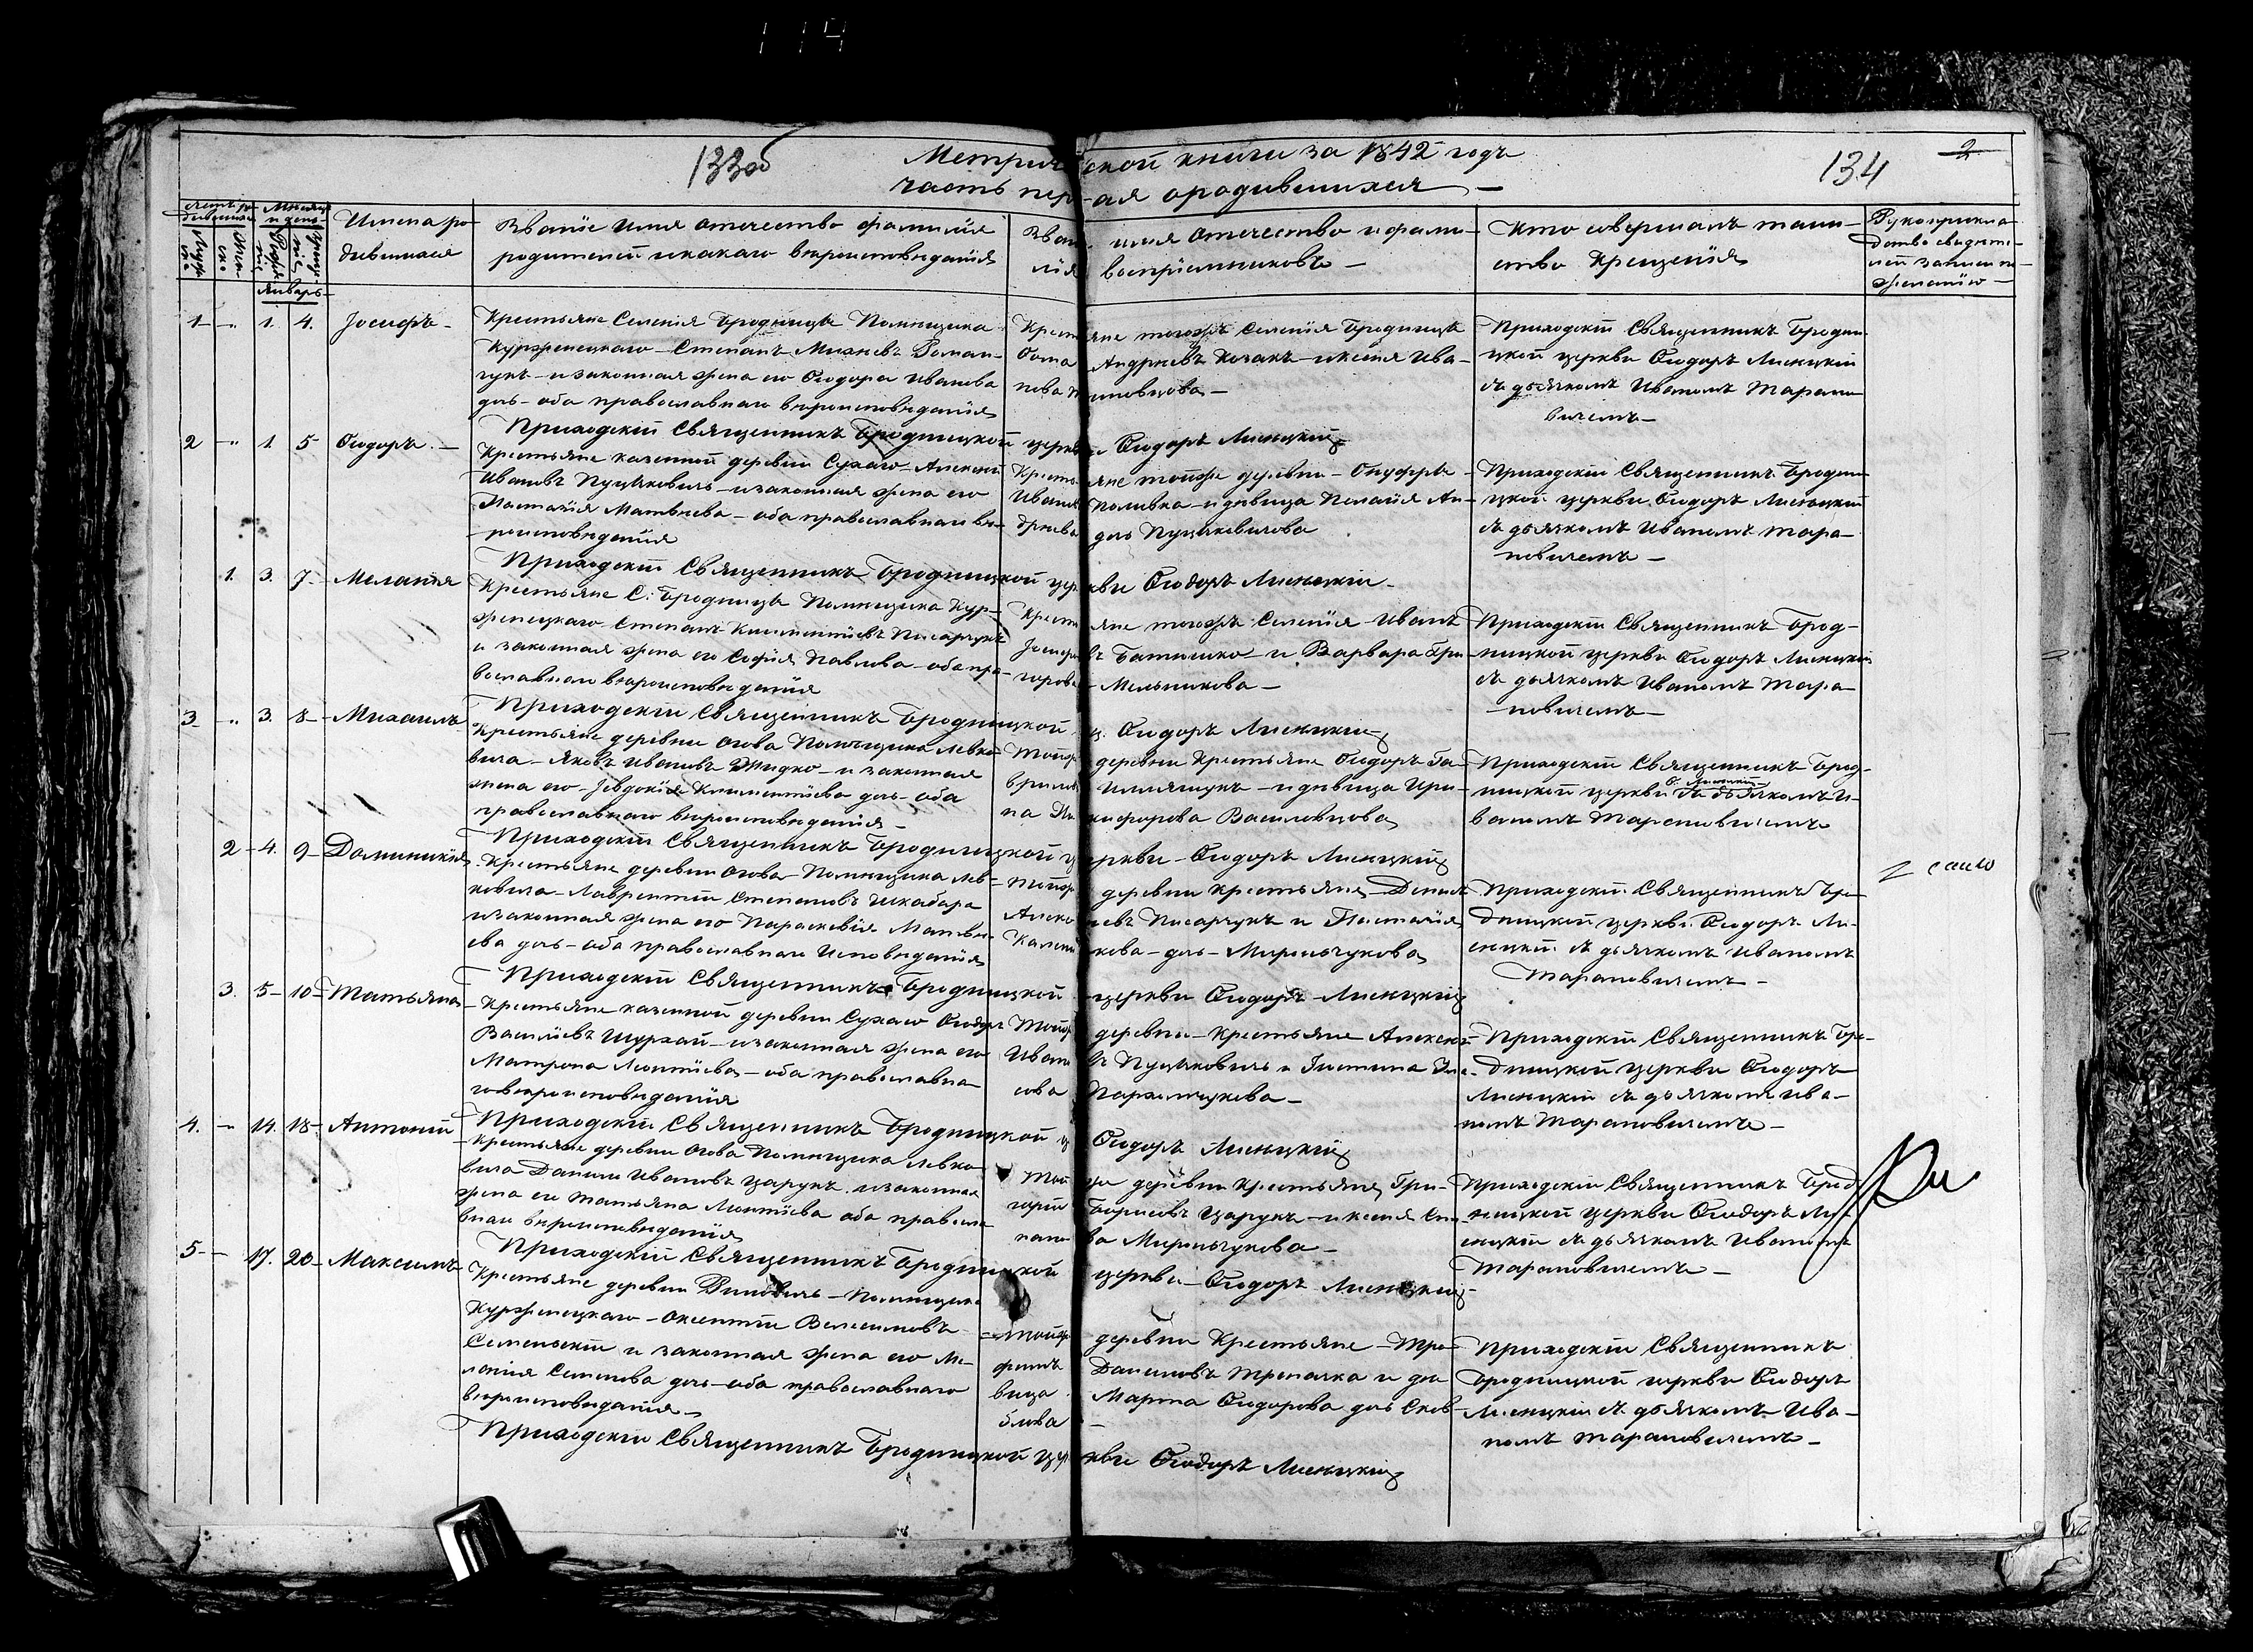 114
133об
Метрической книги за 1842 годъ
134
2
часть первая о родившихся —
Имена родившихся
Званіе имя отечество фамилія
родителей и какаго вѣроисповѣданія
имя отечество и фами-
воспріемниковъ —
Кто совершалъ таин-
ство крещенія
Рукоприклад-
ство свидѣте-
лей записи по
желанію —
Январь
1 — " 1. 4. Іосифъ —
Крестьяне Селенія Бродницы Помѣщика
Курженецкаго — Степанъ Михѣевъ Роман-
чукъ — и законная жена его Ѳеодора Иванова
дочь — оба православнаго вѣроисповѣданія
Крестьяне тогожъ Селенія Бродницы
Андреевъ Козакъ — и Ксенія Ива-
нова
Приходскій Священникъ Бродни-
цкой церкви Ѳеодоръ Лисицкій
съ дьячкомъ Иваномъ Тарано-
вичемъ —
Приходскій Священникъ Бродницкой церкви Ѳеодоръ Лисицкій
2 — " 1 5 Ѳеодоръ —
Крестьяне казенной деревни Сухаго Алексѣй
Ивановъ Пуцяковичь — и законная жена его
Настасія Матвѣева — оба православнаго вѣ-
роисповѣданія
Крестьяне тойже деревни — Онуфрій
Ивановъ Поливка — и дѣвица Пелагія Ан-
дреева дочь Пуцяковичова
Приходскій Священникъ Бродни-
цкой церкви Ѳеодоръ Лисицкій
съ дьячкомъ Иваномъ Тара-
новичемъ —
Приходскій Священникъ Бродницкой церкви Ѳеодоръ Лисицкій —
1. 3. 7. Меланія
Крестьяне С: Бродницы Помѣщика Кур-
женецкаго Степанъ Климентіевъ Писарчукъ
и законная жена его Софія Павлова — оба пра-
вославнаго вѣроисповѣданія
Крестьяне тогожъ Селенія Иванъ
Іосифовъ Батишко — и Варвара Гри-
горова — Мельникова —
Приходскій Священникъ Брод-
ницкой церкви Ѳеодоръ Лисицкій
съ дьячкомъ Иваномъ Тара-
новичемъ —
Приходскій Священникъ Бродницкой ц. Ѳеодоръ Лисицкій
3 — " 3. 8 — Михаилъ
Крестьяне деревни Огова Помѣщика Левко-
вича — Яковъ Ивановъ Жидко — и законная
жена его — Іевдокія Климентіева дочь — оба
православнаго вѣроисповѣданія —
Тойже деревни Крестьяне Ѳеодоръ Га-
вриловъ — и дѣвица Ири-
на Никифорова Василевцова
Приходскій Священникъ Брод-
ницкой церкви Ѳ. Лисицкій съ дьячкомъ И-
ваномъ Тарановичемъ
Приходскій Священникъ Бродницкой церкви — Ѳеодоръ Лисицкій
2 — 4. 9 — Доминикія
Крестьяне деревни Огова — Помѣщика Лев-
ковича — Лаврентій Степановъ Шкабара
и законная жена его Параскевія Матвѣ-
ева дочь — оба православнаго Исповѣданія
Тойже деревни крестьяне — Данилъ
Алексѣевъ Писарчукъ и Настасія
дочь — Мирончукова
Приходскій Священникъ Бро-
дницкой церкви Ѳеодоръ Ли-
сицкій съ дьячкомъ Иваномъ
Тарановичемъ —
Приходскій Священникъ Бродницкой церкви Ѳеодоръ Лисицкій
3. 5 — 10 — Татьяна
Крестьяне казенной деревни Сухаго Ѳеодоръ
Васильевъ Шурхай — и законная жена его
Матрона Леонтіева — оба православна-
го вѣроисповѣданія
Тойже деревни — крестьяне Алексѣй
Ивановъ Пуцяковичь и Іустина
Пархомчукова —
Приходскій Священникъ Бро-
дницкой церкви Ѳеодоръ
Лисицкій съ дьячкомъ Ива-
номъ Тарановичемъ —
Приходскій Священникъ Бродницкой ц Ѳеодоръ Лисицкій
4. — " 14. 18 — Антоній
Крестьяне деревни Огова Помѣщика Левко-
вича Данило Ивановъ Царукъ и законная
жена его Татьяна Леонтіева оба правосла-
внаго вѣроисповѣданія
деревни Крестьяне Гри-
горій Борисовъ Царукъ — и Ксенія Сте-
панова Мирончукова —
Приходскій Священникъ Брод-
ницкой церкви Ѳеодоръ Ли-
сицкій съ дьячкомъ Иваномъ
Тарановичемъ —
Приходскій Священникъ Бродницкой церкви — Ѳеодоръ Лисицкій —
5 — — 17. 20 — Максимъ
Крестьяне деревни — Помѣщика
Курженецкаго — Оксентій
и законная жена его Ме-
ланія Семенова дочь — оба православнаго
вѣроисповѣданія —
Тойже деревни Крестьяне — Тро-
фимъ Даниловъ Трепачка и дѣ-
вица Марта Ѳеодорова дочь
Приходскій Священникъ
Бродницкой церкви Ѳеодоръ
Лисицкій съ дьячкомъ Ива-
номъ Тарановичемъ —
Приходскій Священникъ Бродницкой церкви Ѳеодоръ Лисицкій